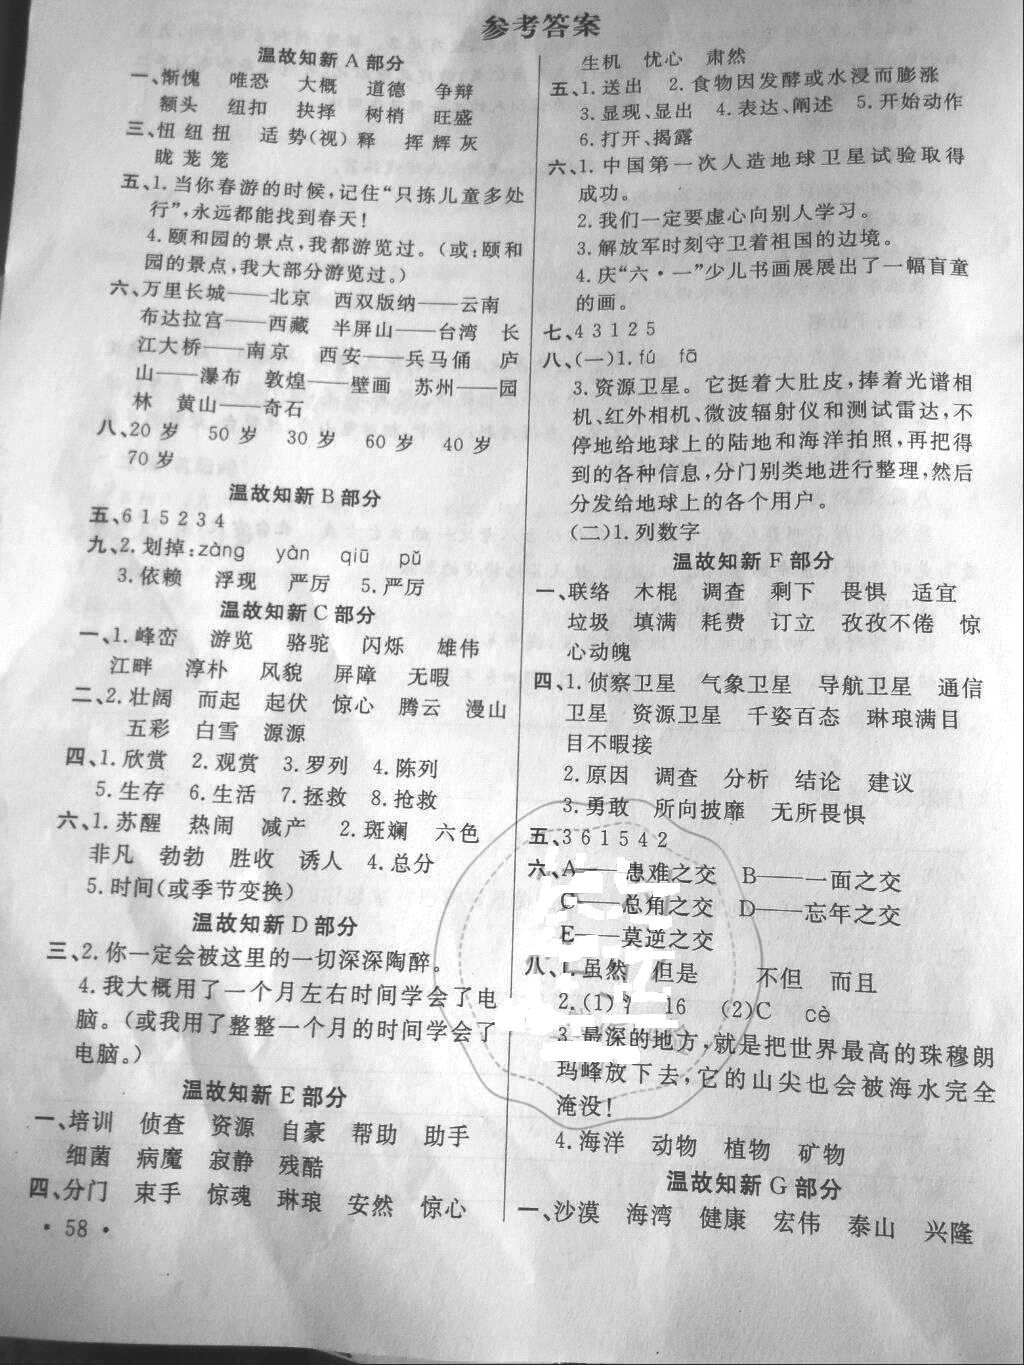 参考答案
温故知新A部分
一、惭愧 唯恐 大概 道德 争辩
额头 纽扣 抉择 树梢 旺盛
三、忸 纽 扭 适 势(视) 释 挥 辉 灰
眬 茏 笼
五、1.当你春游的时候,记住“只拣儿童多处
行”,永远都能找到春天!
4.颐和园的景点,我都游览过。(或:颐和
园的景点,我大部分游览过。)
六、万里长城——北京 西双版纳——云南
布达拉宫——西藏 半屏山——台湾 长
江大桥——南京 西安——兵马俑 庐
山——瀑布 敦煌——壁画 苏州——园
林 黄山——奇石
八、20岁 50岁 30岁 60岁 40岁
70岁
温故知新B部分
五、6 1 5 2 3 4
九、2.划掉:zàng yàn qiū pǔ
3.依赖 浮现 严厉 5.严厉
温故知新C部分
一、1.峰峦 游览 骆驼 闪烁 雄伟
江畔 淳朴 风貌 屏障 无暇
二、2.壮阔 而起 起伏 惊心 腾云 漫山
五彩 白雪 源源
四、1.欣赏 2.观赏 3.罗列 4.陈列
5.生存 6.生活 7.拯救 8.抢救
六、1.苏醒 热闹 减产 2.斑斓 六色
非凡 勃勃 胜收 诱人 4.总分
5.时间(或季节变换)
温故知新D部分
三、2.你一定会被这里的一切深深陶醉。
4.我大概用了一个月左右时间学会了电
脑。(或我用了整整一个月的时间学会了
电脑。)
温故知新E部分
一、培训 侦查 资源 自豪 帮助 助手
细菌 病魔 寂静 残酷
四、分门 束手 惊魂 琳琅 安然 惊心
· 58 ·
生机 忧心 肃然
五、1.送出 2.食物因发酵或水浸而膨涨
3.显现、显出 4.表达、阐述 5.开始动作
6.打开、揭露
六、1.中国第一次人造地球卫星试验取得
成功。
2.我们一定要虚心向别人学习。
3.解放军时刻守卫着祖国的边境。
4.庆“六·一”少儿书画展展出了一幅盲童
的画。
七、4 3 1 2 5
八、(一)1.fú fā
3.资源卫星。它挺着大肚皮,捧着光谱相
机、红外相机、微波辐射仪和测试雷达,不
停地给地球上的陆地和海洋拍照,再把得
到的各种信息,分门别类地进行整理,然后
分发给地球上的各个用户。
(二)1.列数字
温故知新F部分
一、联络 木棍 调查 剩下 畏惧 适宜
垃圾 填满 耗费 订立 孜孜不倦 惊
心动魄
四、1.侦察卫星 气象卫星 导航卫星 通信
卫星 资源卫星 千姿百态 琳琅满目
目不暇接
2.原因 调查 分析 结论 建议
3.勇敢 所向披靡 无所畏惧
五、3 6 1 5 4 2
六、A——患难之交 B——一面之交
C——总角之交 D——忘年之交
E——莫逆之交
八、1.虽然 但是 不但 而且
2.(1) 16 (2)C cè
3.最深的地方,就是把世界最高的珠穆朗
玛峰放下去,它的山尖也会被海水完全
淹没!
4.海洋 动物 植物 矿物
温故知新G部分
一、沙漠 海湾 健康 宏伟 泰山 兴隆